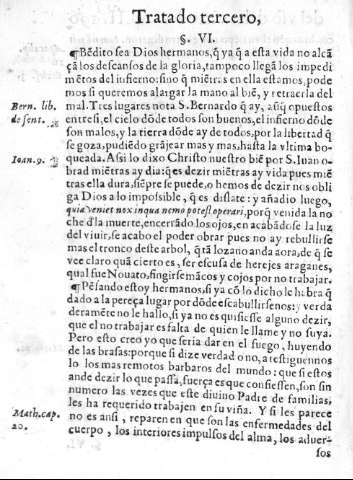 Tratado tercero,
§. VI.
¶Bẽdito sea Dios hermanos, q̃ ya q̃ a esta vida no alcã
ça los descansos de la gloria, tampoco llegã los impedi
mẽtos del infierno: sino q̃ miẽtras en ella estamos, pode
mos si queremos alargar la mano al biẽ, y retraerla del
Bern. lib. de sent.
mal. Tres lugares nota S. Bernardo q̃ ay, aũq̃ opuestos
entre si, el cielo dõde todos son buenos, el infierno dõde
son malos, y la tierra dõde ay de todos, por la libertad q̃
se goza, pudiẽdo grãjear mas y mas, hasta la vltima bo-
Ioan. 9.
queada. Assi lo dixo Christo nuestro biẽ por S. Iuan o-
brad miẽtras ay dia: q̃ es dezir miẽtras ay vida pues miẽ
tras ella dura, siẽpre se puede, o hemos de dezir nos obli
ga Dios a lo impossible, q̃ es disslate: y añadio luego,
quia veniet nox in qua nemo potest operari, porq̃ venida la no
che d̃ la muerte, encerrãdo los ojos, en acabãdose la luz
del viuir, se acabo el poder obrar pues no ay rebullirse
mas el tronco deste arbol, q̃ tã lozano anda aora, de q̃ se
vee claro quã cierto es, ser escusa de herejes araganes,
qual fue Nouato, fingirse mãcos y cojos por no trabajar.
¶Pẽsando estoy hermanos, si ya cõ lo dicho le habra q̃
dado a la pereça lugar por dõde escabullirse nos: y verda
deramẽte no le hallo, si ya no es quisiesse alguno dezir,
que el no trabajar es falta de quien le llame y no suya.
Pero esto creo yo que seria dar en el fuego, huyendo
de las brasas: porque si dize verdad o no, atestiguennos
lo los mas remotos barbaros del mundo: que si estos
ande dezir lo que passa, fuerça es que confiessen, son sin
numero las vezes que este diuino Padre de familias,
Math. cap. 20.
les ha requerido trabajen en su viña. Y si les parece
no es ansi, reparen en que son las enfermedades del
cuerpo, los interiores impulsos del alma, los aduer-
sos